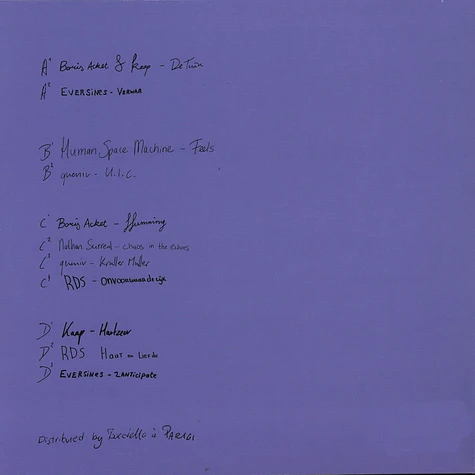 A1 Boris Acket & Kaap - De Tuin
A2 EVERSINES - VERWAR
B1 Human Space Machine - Feels
B2 queniv - U.I.C.
C1 Boris Acket - Humming
C2 Nathan Surreal - chaos in the echoes
C3 queniv - Kröller Müller
C4 RDS - ONVOORWAARDELIJK
D1 Kaap - Hartzeer
D2 RDS Haat en Liefde
D3 EVERSINES - ZANTICIPATE
Distributed by à